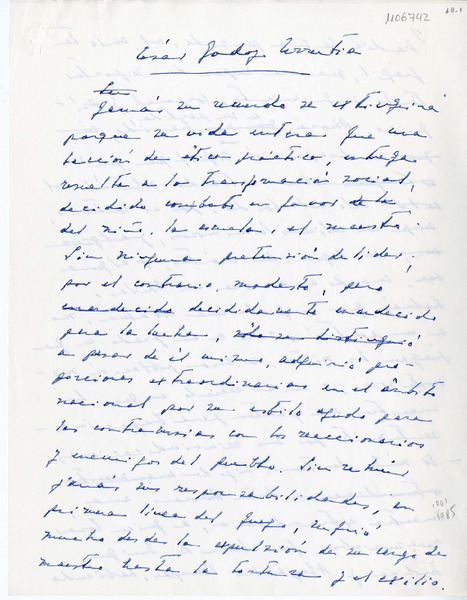 1106742
César Godoy Urrutia
Jamás su recuerdo se extinguirá
porque su vida entera fue una
lección de ética práctica, entrega
resuelta a la transformación social,
decidido combate en favor de la
del niño, la escuela, el maestro.
Sin ninguna pretensión de lider,
por el contrario, modesto, pero
enardecido decididamente enardecido
para la lucha, sólo se distinguió
a pesar de él mismo, adquirió pro-
porciones extraordinarias en el ámbito
nacional por su estilo agudo para
las controversias con los reaccionarios
y enemigos del pueblo. Sin rehuir
jamás sus responsabilidades, en
primera línea del fuego, sufrió
mucho desde la expulsión de su cargo de
maestro hasta la tortura y el exilio.